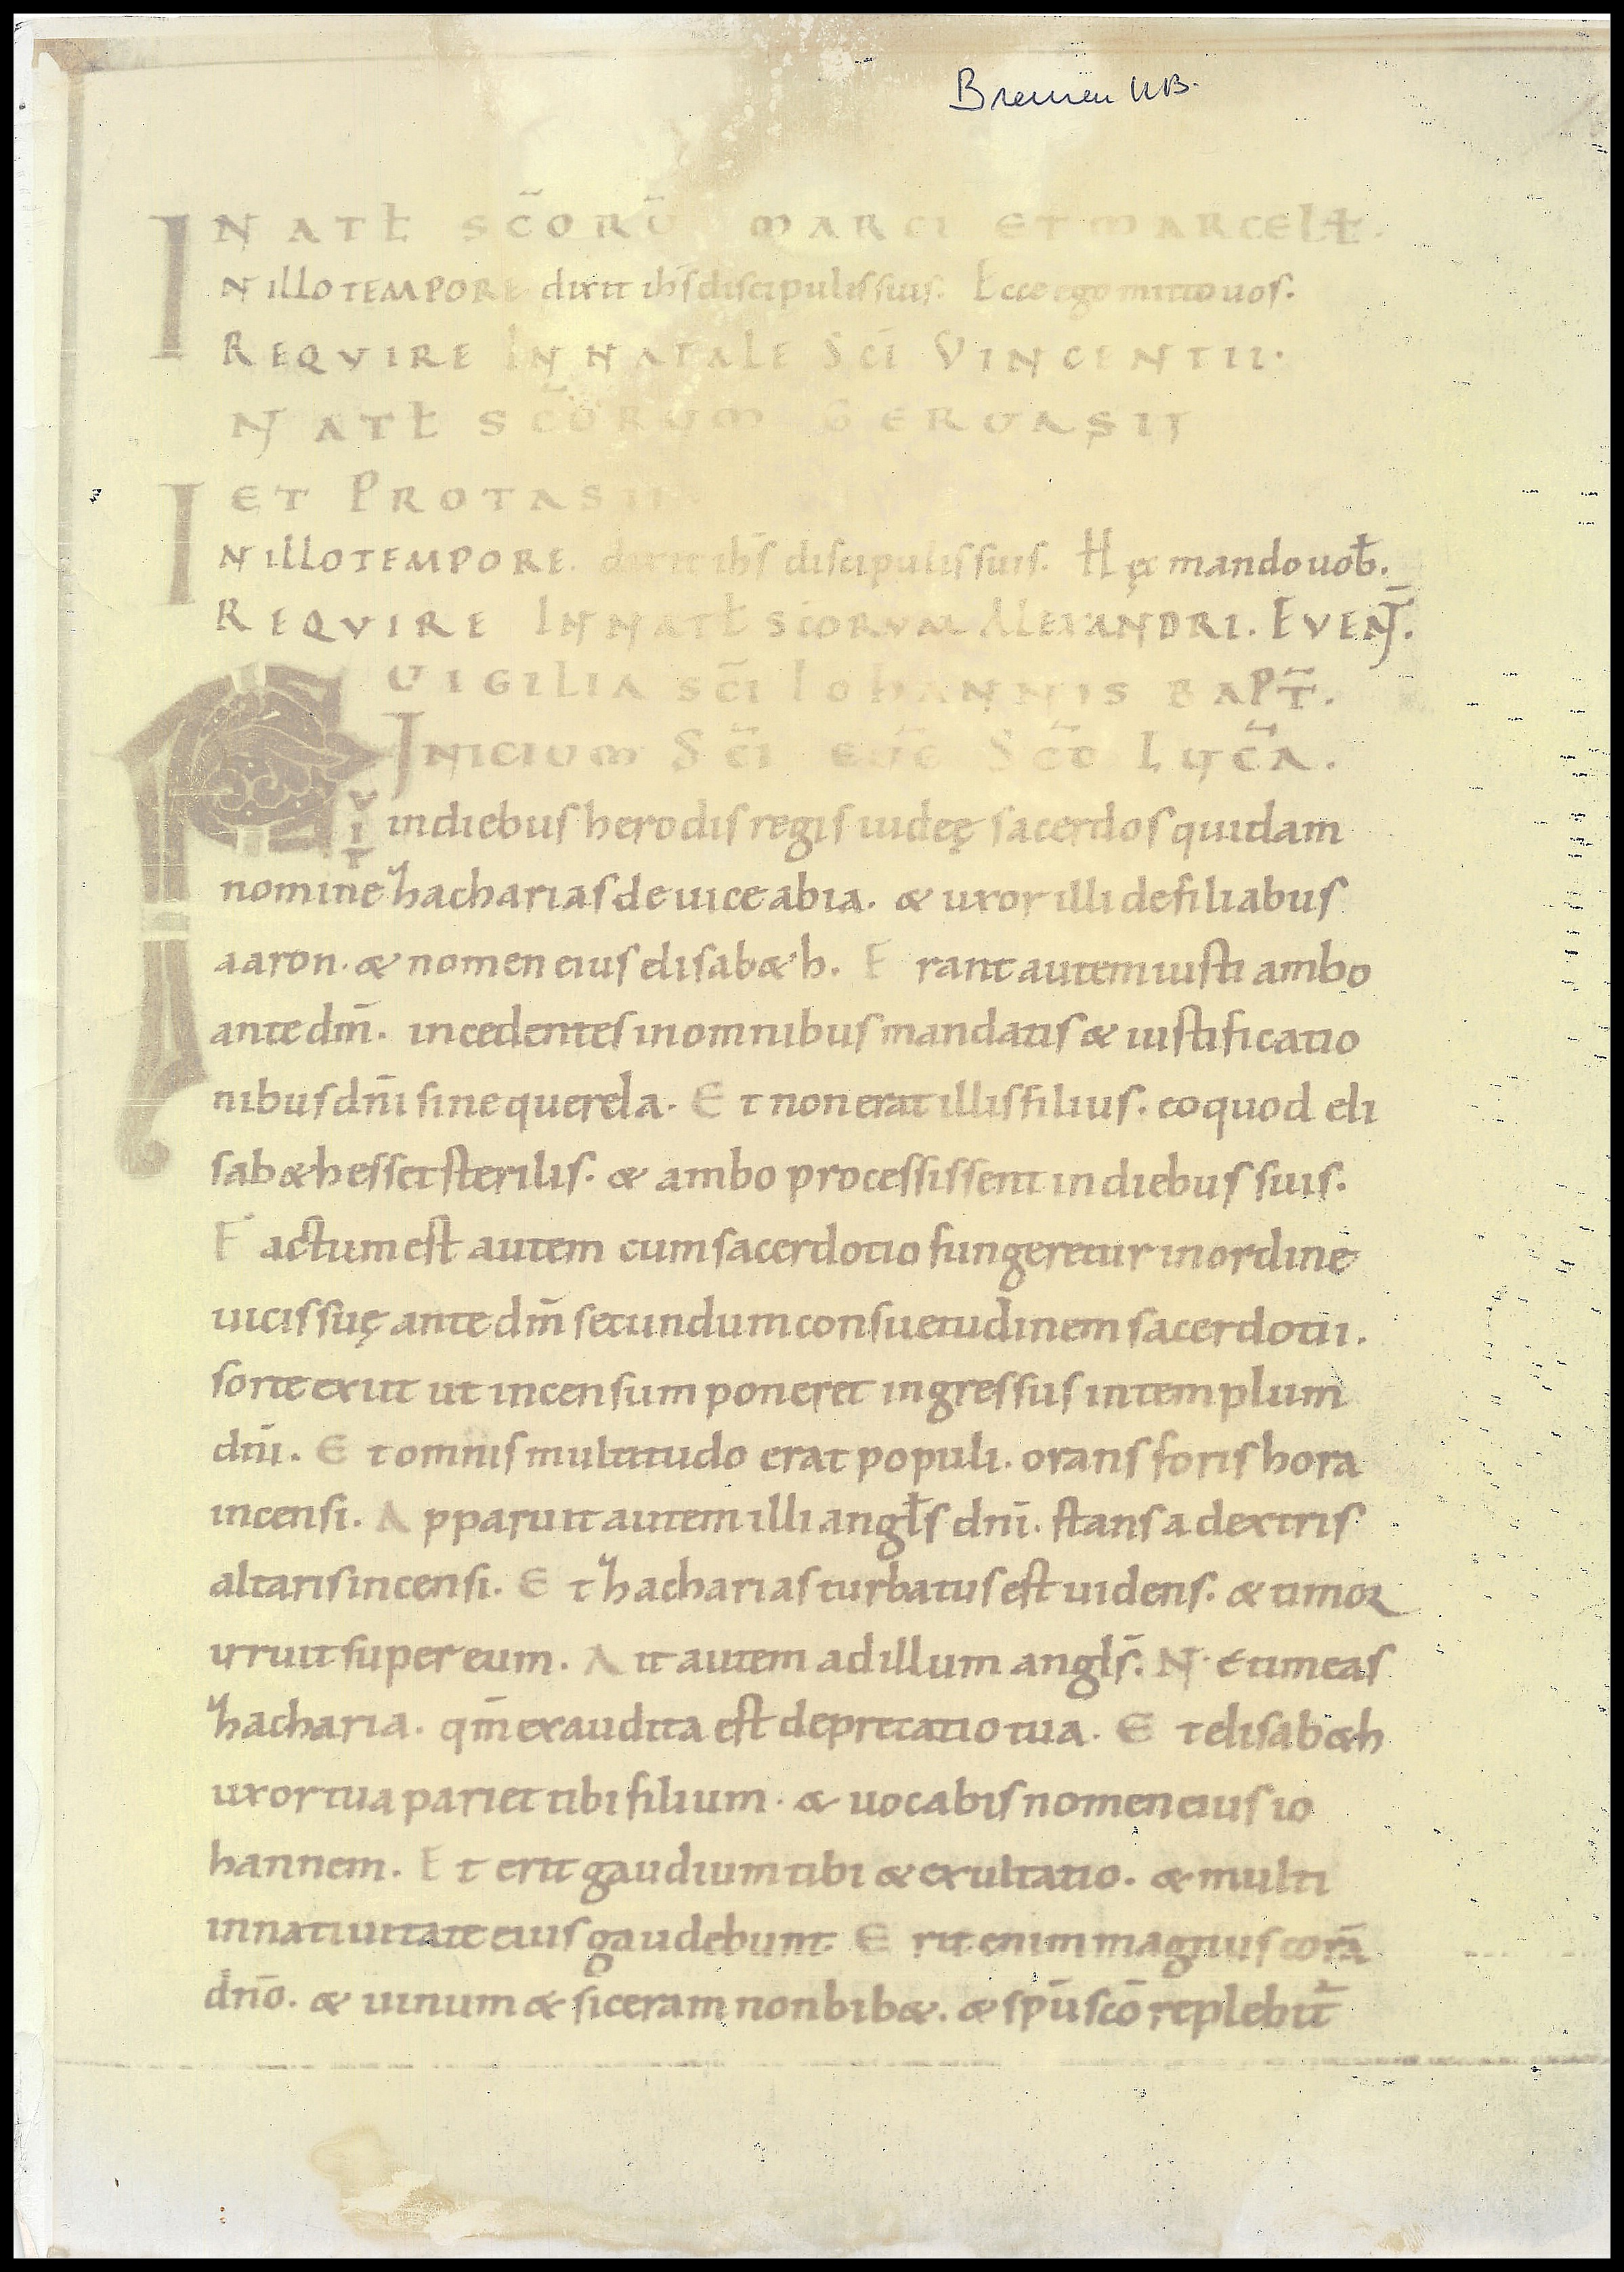 Bremen UB.
IN NATł SC̄ORŪ MARCI ET MARCELł.
IN ILLO TEMPORE dixit ih̄s discipulis suis. Ecce ego mitto uos.
REQVIRE IN NATALE SC̄I VINCENTII.
NATł SC̄ORUM GERUASII
ET PROTASII.
IN ILLO TEMPORE. dixit ih̄s discipulis suis. Hęc mando uob̄.
REQVIRE IN NATł SC̄ORVM ALEXANDRI. EVENT̄.
UIGILIA SC̄I IOHANNIS BAPT̄.
INICIUM SC̄I EUḠ SC̄D LUC̄A.
FUIT in diebus herodis regis iudeę sacerdos quidam
nomine zhacharias de uice abia. & uxor illi de filiabus
aaron. & nomen eius elisab&h. Erant autem iusti ambo
ante dm̄. incedentes in omnibus mandatis & iustificatio
nibus dn̄i sine querela. Et non erat illis filius. eo quod eli
sab&h esset sterilis. & ambo processissent in diebus suis.
Factum est autem cum sacerdotio fungeretur in ordine
uicis suę ante dm̄ secundum consuetudinem sacerdotii.
sorte exiit ut incensum poneret ingressus in templum
dn̄i. Et omnis multitudo erat populi. orans foris hora
incensi. Apparuit autem illi angłs dn̄i. stans a dextris
altaris incensi. Et zhacharias turbatus est uidens. & timor
irruit super eum. Ait autem ad illum angls̄. Ne timeas
zhacharia. qm̄ exaudita est deprecatio tua. Et elisab&h
uxor tua pariet tibi filium. & uocabis nomen eius io
hannem. Et erit gaudium tibi & exultatio. & multi
in natiuitate eius gaudebunt. Erit enim magnus corā
dn̄o. & uinum & siceram non bib&. & sp̄u sc̄o replebit̄